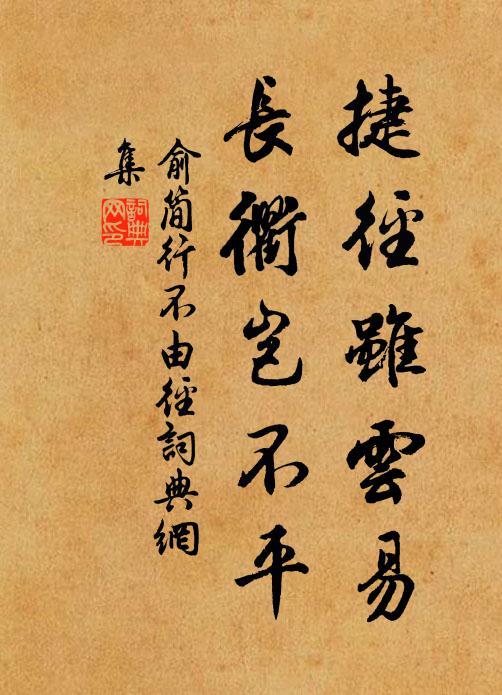 捷徑雖雲易
長衢豈不平
俞簡行不由徑詞典網
集
詞典
网印